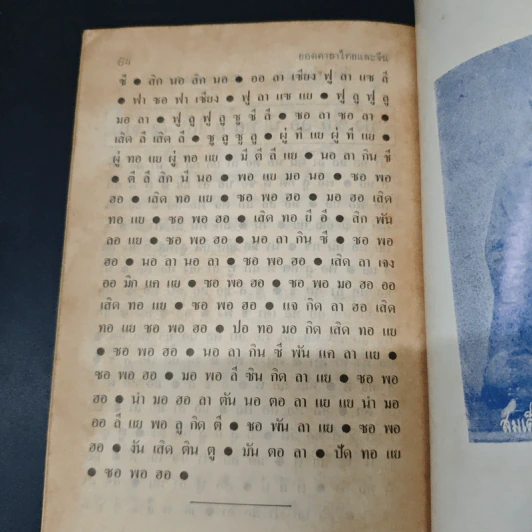 64
ยอดคาถาไทยและจีน
ซี ● สิก นอ สิก นอ ● ออ ลา เซียง ฟู ลา แซ ลี
● ฟา ซอ ฟา เซียง ● ฟู ลา แซ แย ● ฟู ลู ฟู ลู
มอ ลา ● ฟู ลู ฟู ลู ซู ซี ลี ● ซอ ลา ซอ ลา ●
เสิด ลี เสิด ลี ● ซู ลู ซู ลู ● ผู่ ที แย ผู่ ที แย ●
ผู่ ทอ แย ผู่ ทอ แย ● มี ตี ลี แย ● นอ ลา กิน ซี
● ตี ลี สิก นี นอ ● พอ แย มอ นอ ● ซอ พอ
ฮอ ● เสิด ทอ แย ● ซอ พอ ฮอ ● มอ ฮอ เสิด
ทอ แย ● ซอ พอ ฮอ ● เสิด ทอ ยี อี ● สิก พัน
ลอ แย ● ซอ พอ ฮอ ● นอ ลา กิน ซี ● ซอ พอ
ฮอ ● นอ ลา นอ ลา ● ซอ พอ ฮอ ● เสิด ลา เจง
ออ มิก แค แย ● ซอ พอ ฮอ ● ซอ พอ มอ ฮอ ออ
เสิด ทอ แย ● ซอ พอ ฮอ ● แจ กิด ลา ออ เสิด
ทอ แย ซอ พอ ฮอ ● ปอ ทอ มอ กิด เสิด ทอ แย
● ซอ พอ ฮอ ● นอ ลา กิน ซี พัน แค ลา แย ●
ซอ พอ ฮอ ● มอ พอ ลี ซิน กิด ลา แย ● ซอ พอ
ฮอ ● นำ มอ ฮอ ลา ตัน นอ ตอ ลา แย แย นำ มอ
ออ ลี แย พอ ลู กิด ตี ● ซอ พัน ลา แย ● ซอ พอ
ฮอ ● งัน เสิด ติน ตู ● มัน ตอ ลา ● ปัด ทอ แย
● ซอ พอ ฮอ ●